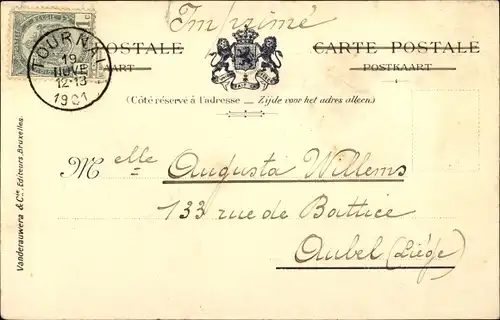 Imprimé
1 C
POSTALE
KAART
CARTE POSTALE
POSTKAART
TOURNAI
19
NOVE
12-13
1901
(Côté réservé à l'adresse — Zijde voor het adres alleen.)
Melle Augusta Willems
133 rue de Battice
Aubel (Liége)
Vanderauwera & Cie, Editeurs, Bruxelles.